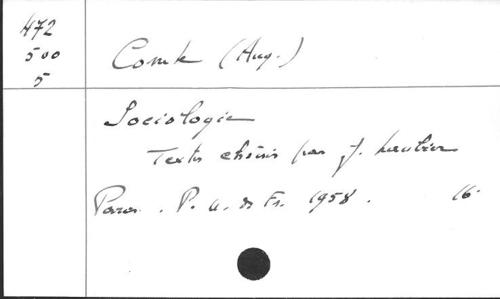 472
500
5
Comte (Aug.)
Sociologie
Textes choisis par J.
Paris. P. U. de Fr. 1958. 16°